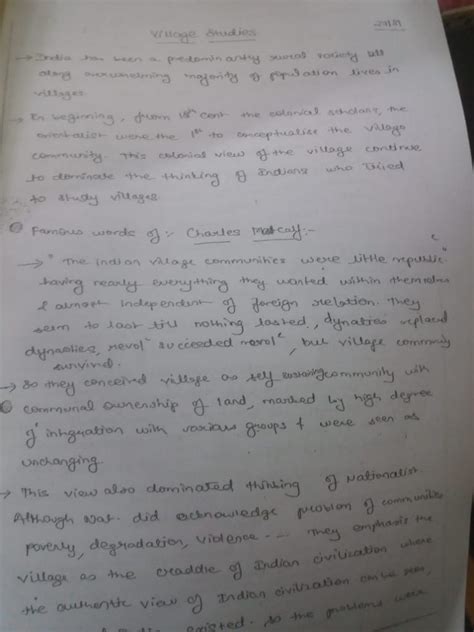 Village Studies
→ India has been a predominantly rural society till
along overwhelming majority of population lives in
villages.
→ In beginning, from 18th cent the colonial scholars, the
orientalist were the 1st to conceptualise the village
community. This colonial view of the village continue
to dominate the thinking of Indians who tried
to study villages
Famous words of :- Charles Metcalf :-
→ " The indian village communities were little republic
having nearly everything they wanted within themselves
& almost independent of foreign relation. They
seem to last till nothing lasted, dynaties replaced
dynasties, revol" succeeded revol", but village community
survived.
→ So they conceived village as self community with
communal ownership of land, marked by high degree
of intigration with various groups & were seen as
unchanging.
→ This view also dominated thinking of Nationalist.
Although Nat. did acknowledge problem of communities
poverty, degradation, violence --- They emphasis the
village as the craddle of Indian civilisation where
the authentic view of Indian civilization can be seen,
existed. so the problems were